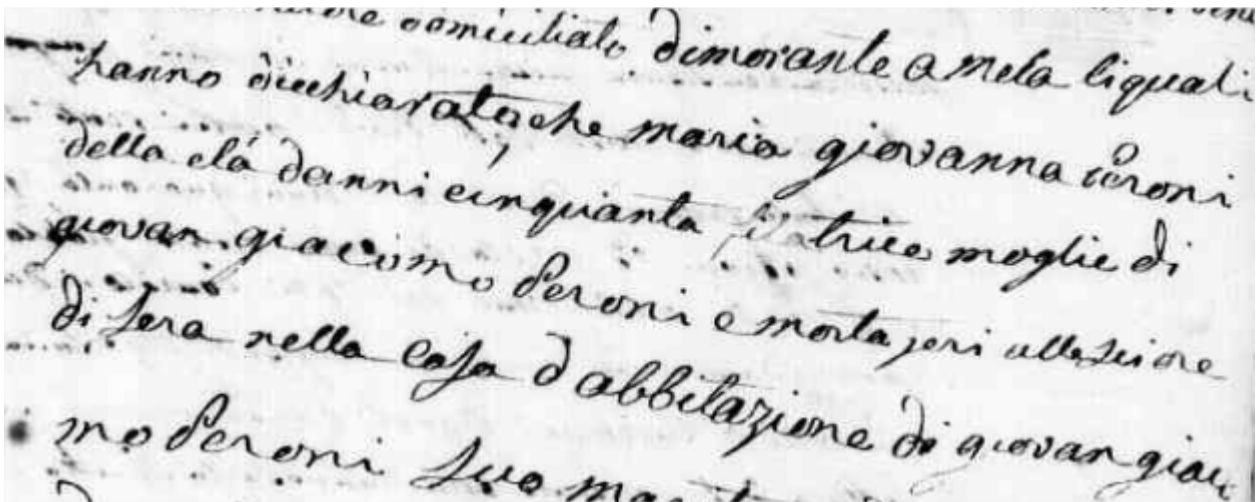 domiciliato dimorante a Mela liquali
hanno dicchiarato che maria giovanna Peroni
della elá danni cinquanta filatrice moglie di
giovan giacomo Peroni è morta jeri alle sei ore
di sera nella casa d abbitazione di giovan giaco
mo Peroni suo